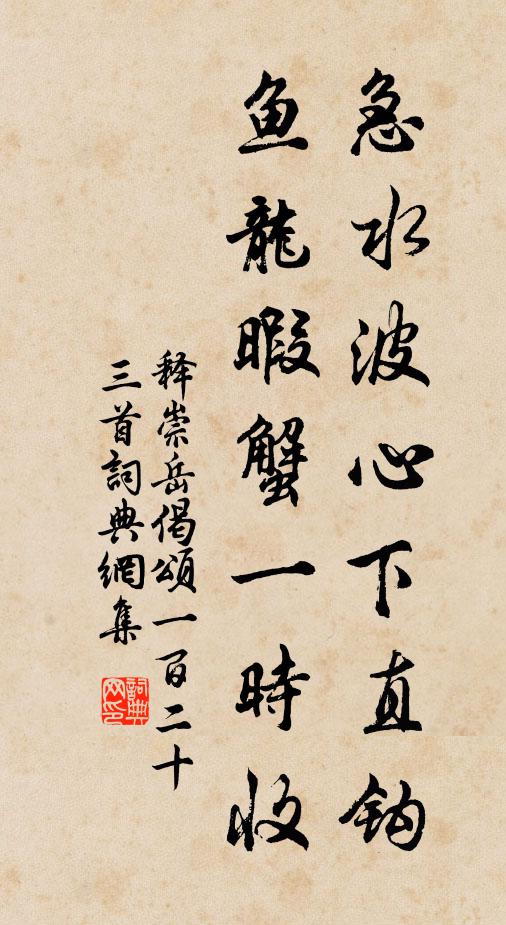 急水波心下直钩
鱼龍暇蟹一時收
释崇岳偈頌一百二十
三首詞典網集
詞典网印